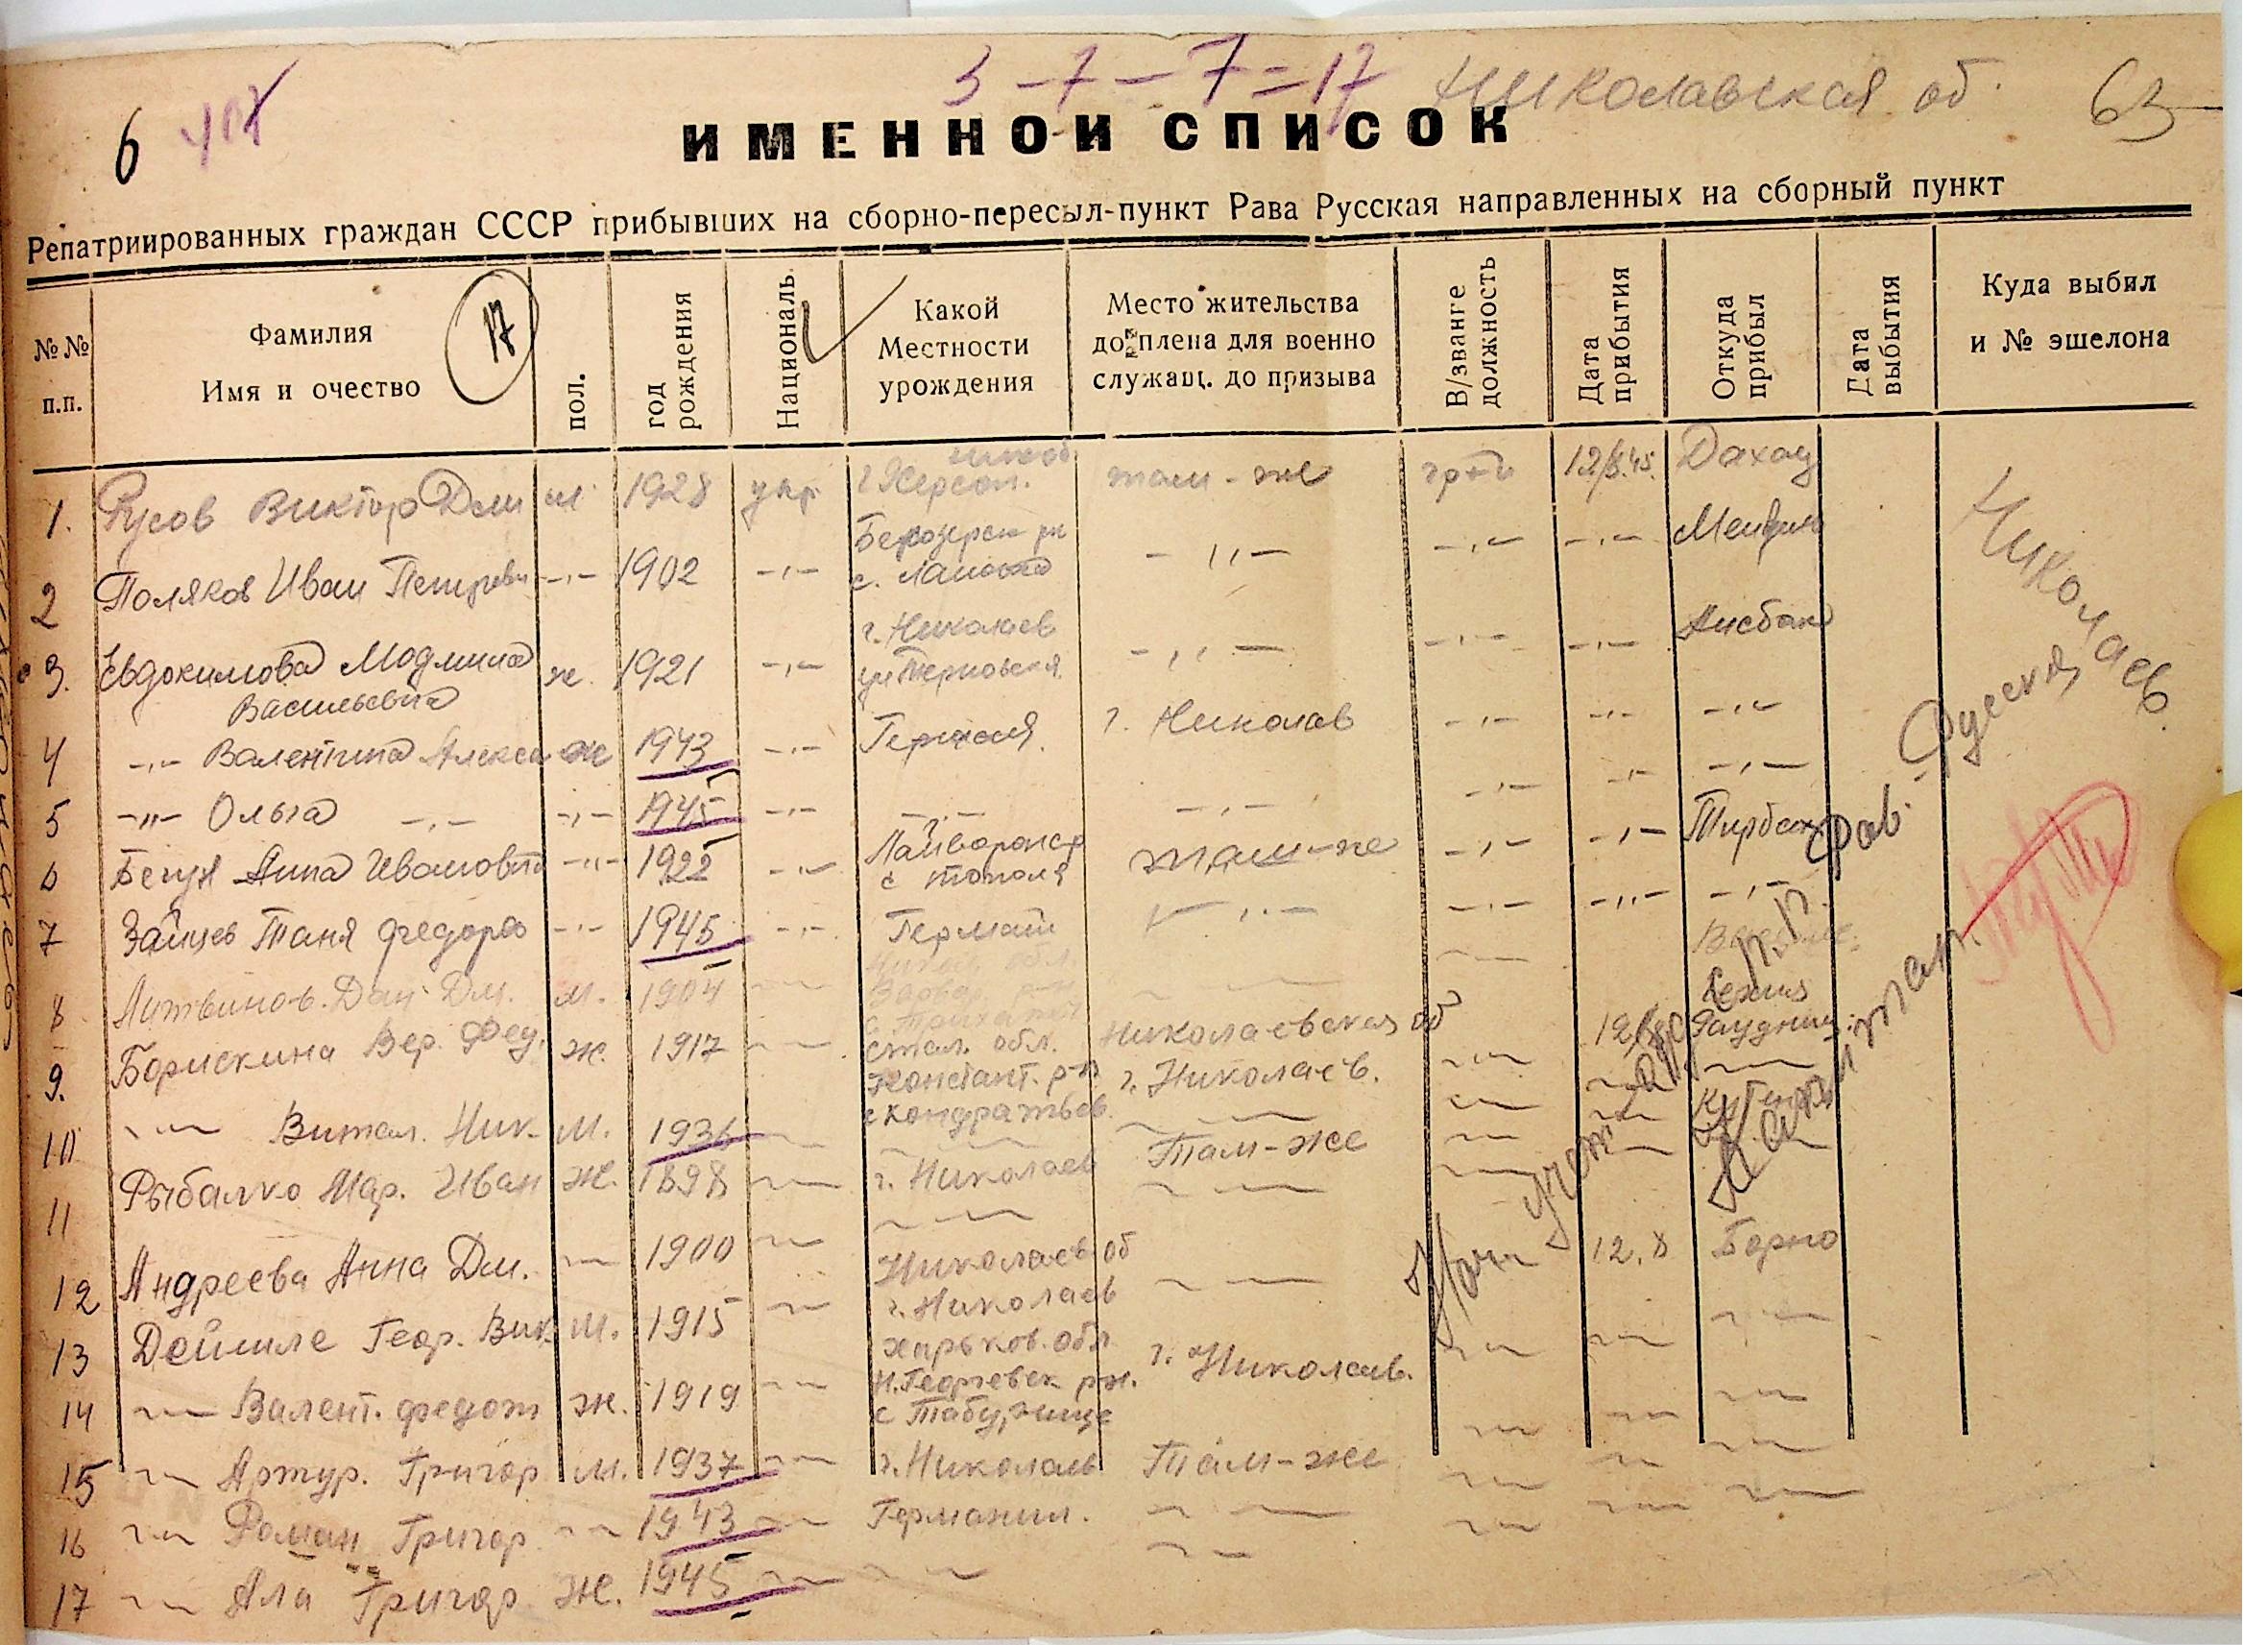 3 - 7 - 7 = 17 Николавская об.
6 63
ИМЕННОЙ СПИСОК
Репатриированных граждан СССР прибывших на сборно-пересыл-пункт Рава Русская направленных на сборный пункт
№№ п.п. Фамилия Имя и очество 17 пол. год рождения Националь. Какой Местности урождения Место жительства до плена для военно служащ. до призыва В/званге должность Дата прибытия Откуда прибыл Дата выбытия Куда выбил и № эшелона
1. Русов Виктор Дми м 1928 укр г. Херсон. там-же гр-н 12/8.45. Дахау
2 Поляков Иван Петрович -"- 1902 -"- Белозерск рн с. -"- -"- -"-
3. Евдокимова Людмила Васильевна ж. 1921 -"- г. Николаев -"- -"- -"- Ансбах
4 -"- Валентина Алекса ж 1943 -"- Германия. г. Николав -"- -"- -"-
5 -"- Ольга -"- -"- 1945 -"- -"- -"- -"- -"- -"-
6 Бегун Анна Ивановна -"- 1922 -"- с Тополя там-же -"- -"-
7 Зайцев Таня Федоров -"- 1945 -"- Герман -"- -"- -"- -"-
8 Литвинов. Дан Дм. м. 1904 -"- -"-
9. Борискина Вер. Фед. ж. 1917 -"- Стал. обл. Констант. р-н с Кондратьев. Николаевская об г. Николаев. 12/8
10 -"- Витал. Ник. м. 1936 -"- -"- -"- -"-
11 Рыбалко Мар. Иван ж. 1898 -"- г. Николаев Там-же -"-
12 Андреева Анна Дм. -"- 1900 -"- -"- -"-
13 м. 1915 -"- Николаев. об г. Николаев -"- -"- 12.8 Борно
14 -"- Валент. Федот ж. 1919 -"- Харьков. обл. Н. Георгевск рн. с Табурище г. Николаев. -"- -"- -"-
15 -"- Артур. Григор. м. 1937 -"- г. Николаев Там-же -"- -"- -"-
16 -"- Роман Григор. -"- 1943 -"- Германия. -"- -"- -"- -"-
17 -"- Ала Григор. ж. 1945 -"- -"- -"- -"- -"- -"-
Николаев.
Нач учет С.П.П. Рав-Русская
Капитан